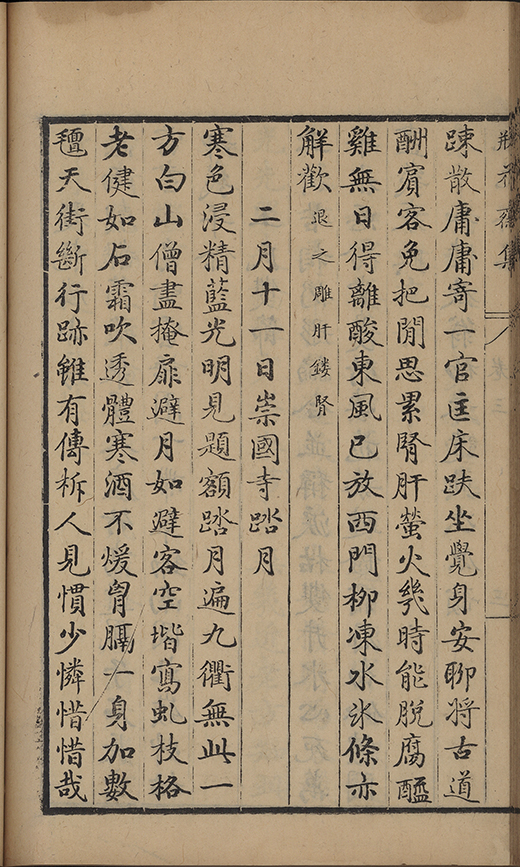 瓶花齋集 卷三
踈散庸庸寄一官匡床趺坐覺身安聊將古道
酬賔客免把閒思累腎肝螢火幾時能脫腐醯
雞無日得離酸東風已放西門柳凍水氷條亦
解歡 退之雕肝鏤腎
二月十一日崇國寺踏月
寒色浸精藍光明見題額踏月遍九衢無此一
方白山僧盡掩扉避月如避客空堦寫虬枝格
老健如石霜吹透體寒酒不煖胷膈一身加數
氊天街斷行跡雖有傳柝人見慣少憐惜惜哉